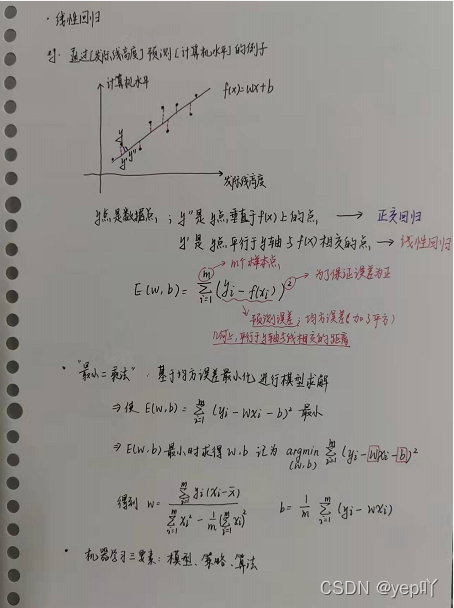 · 线性回归
对 通过[发际线高度]预测[计算机水平]的例子
计算机水平
f(x)=wx+b
y
y' y''
发际线高度
y点是数据点 ; y''是y点垂直于f(x)上的点 → 正交回归
y'是y点平行于y轴与f(x)相交的点 → 线性回归
m个样本点
为了保证误差为正
E(w,b) = ∑_{i=1}^{m} (y_i - f(x_i))^2
预测误差; 均方误差(加了平方)
几何上,平行于y轴与线相交的距离
· "最小二乘法": 基于均方误差最小化进行模型求解
⇒ 使 E(w,b) = ∑_{i=1}^{m} (y_i - wx_i - b)^2 最小
⇒ E(w,b)最小时求得 w,b 记为 argmin_{(w,b)} ∑_{i=1}^{m} (y_i - wx_i - b)^2
得到 w = \frac{∑_{i=1}^{m} y_i(x_i - \bar{x})}{∑_{i=1}^{m} x_i^2 - \frac{1}{m}(∑_{i=1}^{m} x_i)^2} b = \frac{1}{m} ∑_{i=1}^{m} (y_i - wx_i)
· 机器学习三要素: 模型、策略、算法
CSDN @yep吖